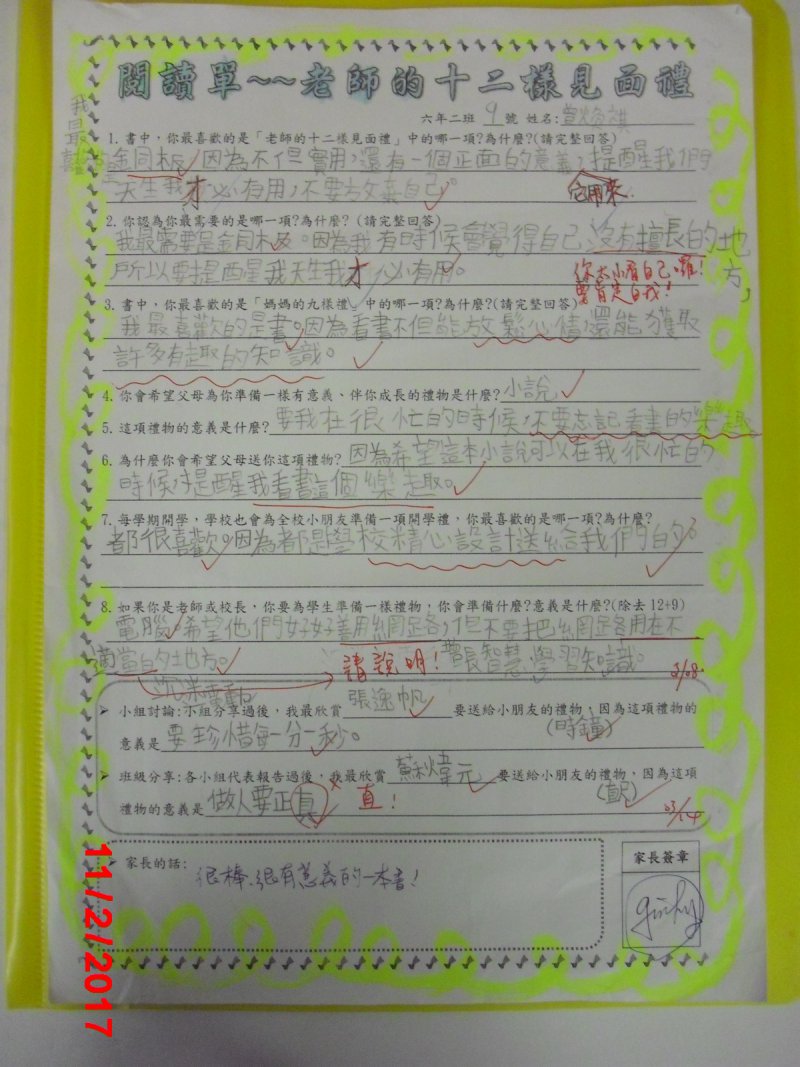 閱讀單~~老師的十二樣見面禮
六年二班 9 號 姓名:
1. 書中，你最喜歡的是「老師的十二樣見面禮」中的哪一項?為什麼?(請完整回答)
我最喜
金同板，因為不但實用，還有一個正面的意義，提醒我們
天生我才必有用，不要放棄自己。
2. 你認為你最需要的是哪一項?為什麼? (請完整回答)
我最需要是金同板。因為我有時候會覺得自己沒有擅長的地方，
所以要提醒我天生我才必有用。
你太小看自己囉!
要肯定自我!
3. 書中，你最喜歡的是「媽媽的九樣禮」中的哪一項?為什麼?(請完整回答)
我最喜歡的是書。因為看書不但能放鬆心情，還能獲取
許多有趣的知識。
4. 你會希望父母為你準備一樣有意義、伴你成長的禮物是什麼? 小說
5. 這項禮物的意義是什麼? 要我在很忙的時候，不要忘記看書的樂趣
6. 為什麼你會希望父母送你這項禮物? 因為希望這本小說可以在我很忙的
時候，提醒我看書這個樂趣。
7. 每學期開學，學校也會為全校小朋友準備一項開學禮，你最喜歡的是哪一項?為什麼?
都很喜歡。因為都是學校精心設計送給我們的。
8. 如果你是老師或校長，你要為學生準備一樣禮物，你會準備什麼?意義是什麼?(除去 12+9)
電腦。希望他們好好善用網路，但不要把網路用在不
適當的地方。 請說明! 增長智慧、學習知識。
3/08
沉迷電動
小組討論:小組分享過後，我最欣賞 張逸帆 要送給小朋友的禮物，因為這項禮物的
(時鐘)
意義是 要珍惜每一分一秒。
班級分享:各小組代表報告過後，我最欣賞 蘇煒元 要送給小朋友的禮物，因為這項
(直尺)
禮物的意義是 做人要正真 直!
03/14
家長的話:
很棒、很有意義的一本書!
家長簽章
11/2/2017